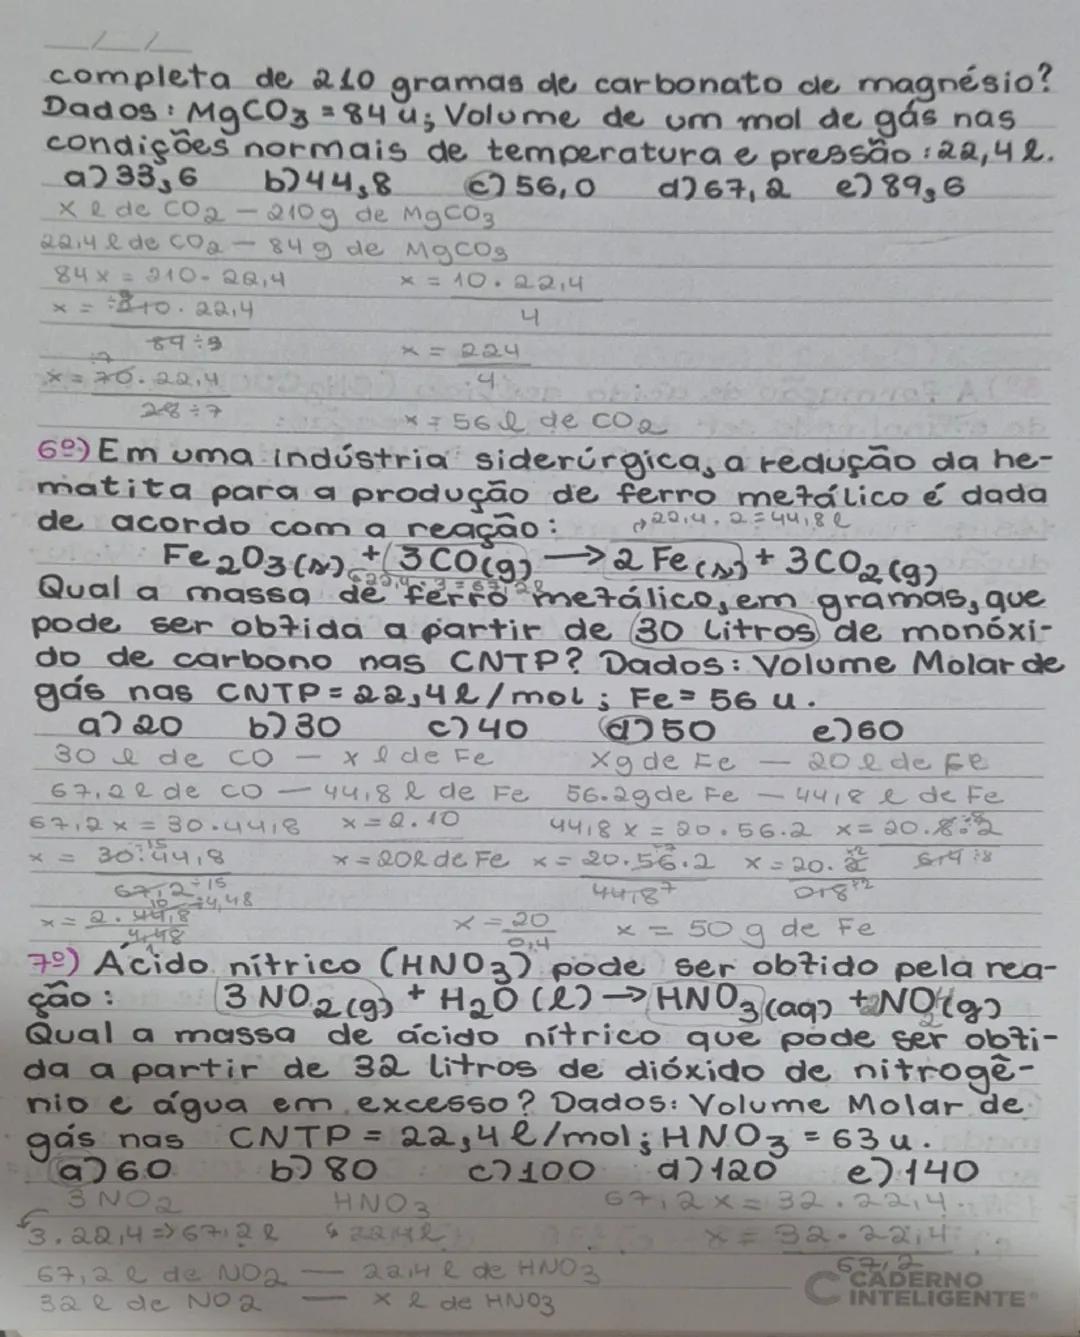 completa de 210 gramas de carbonato de magnésio?
Dados: MgCO3 = 84 u; Volume de um mol de gás nas
condições normais de temperatura e pressão: 22,4 l.
a) 33,6 b) 44,8 c) 56,0 d) 67,2 e) 89,6
x l de CO2 — 210g de MgCO3
22,4 l de CO2 — 84 g de MgCO3
84 x = 210 . 22,4 x = 10 . 22,4
4
x = 210 . 22,4
84 ÷3 x = 224
4
x = 70 . 22,4
28 ÷7 x = 56 l de CO2
6º) Em uma indústria siderúrgica, a redução da he-
matita para a produção de ferro metálico é dada
de acordo com a reação: 22,4 . 2 = 44,8 l
Fe2O3(s) + 3CO(g) → 2 Fe(s) + 3CO2(g)
22,4 . 3 = 67,2 l
Qual a massa de ferro metálico, em gramas, que
pode ser obtida a partir de 30 litros de monóxi-
do de carbono nas CNTP? Dados: Volume Molar de
gás nas CNTP = 22,4 l/mol; Fe = 56 u.
a) 20 b) 30 c) 40 d) 50 e) 60
30 l de CO — x l de Fe xg de Fe — 20 l de Fe
67,2 l de CO — 44,8 l de Fe 56.2g de Fe — 44,8 l de Fe
67,2 x = 30 . 44,8 x = 2 . 10 44,8 x = 20 . 56 . 2 x = 20 . 8 . 2
6,4 ÷8
x = 30 . 44,8 x = 20 l de Fe x = 20 . 56 . 2 x = 20 . 2
67,2 ÷15 44,8 ÷7 0,8 ÷2
x = 2 . 44,8 x = 20 x = 50 g de Fe
4,48 0,4
7º) Ácido nítrico (HNO3) pode ser obtido pela rea-
ção: 3 NO2(g) + H2O(l) → HNO3(aq) + NO(g)
Qual a massa de ácido nítrico que pode ser obti-
da a partir de 32 litros de dióxido de nitrogê-
nio e água em excesso? Dados: Volume Molar de
gás nas CNTP = 22,4 l/mol; HNO3 = 63 u.
a) 60 b) 80 c) 100 d) 120 e) 140
3 NO2 HNO3 67,2 x = 32 . 22,4
3 . 22,4 ⇒ 67,2 l 22,4 l x = 32 . 22,4
67,2
67,2 l de NO2 — 22,4 l de HNO3
32 l de NO2 — x l de HNO3
CADERNO
INTELIGENTE